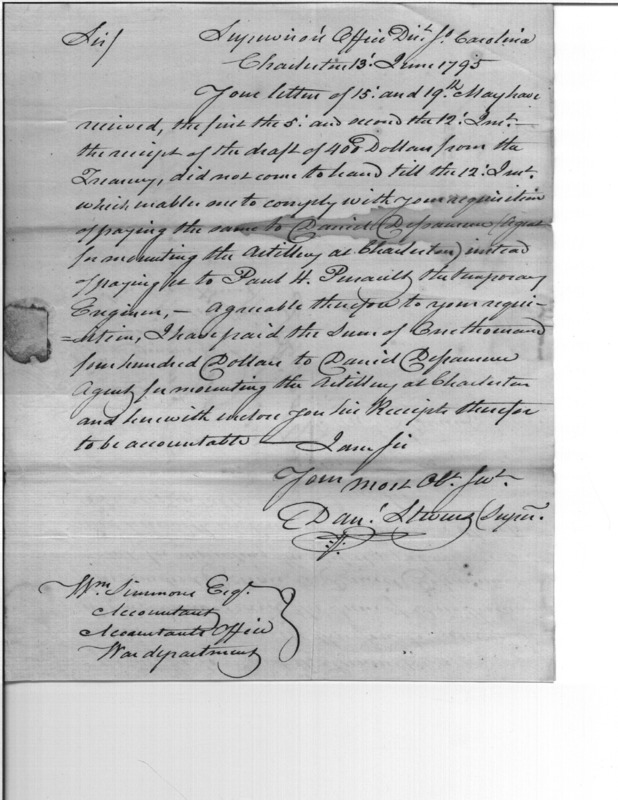 Sir/ Supervisor's Office Dist. So. Carolina
Charleston 13: June 1795
Your letters of 15: and 19.th May have
received, the first the 5: and second the 12: Inst.—
the receipt of the draft of 400 Dollars from the
Treasury, did not come to hand till the 12: Inst.
which enables me to comply with your requisition
of paying the same to Daniel Desaussure (Agent
for mounting the Artillery at Charleston) instead
of paying it to Paul H. Perrault the temporary
Engineer,— Agreable therefore to your requi-
=sition, I have paid the Sum of One thousand
four hundred Dollars to Daniel Desaussure
Agent for mounting the Artillery at Charleston
and herewith enclose you his Receipts therefor
to be accountable — I am Sir
Your most Obt. Svt.
Dan.l Stevens Supvr.
Wm. Simmons Esqr.
Accountant
Accountants Office
War department